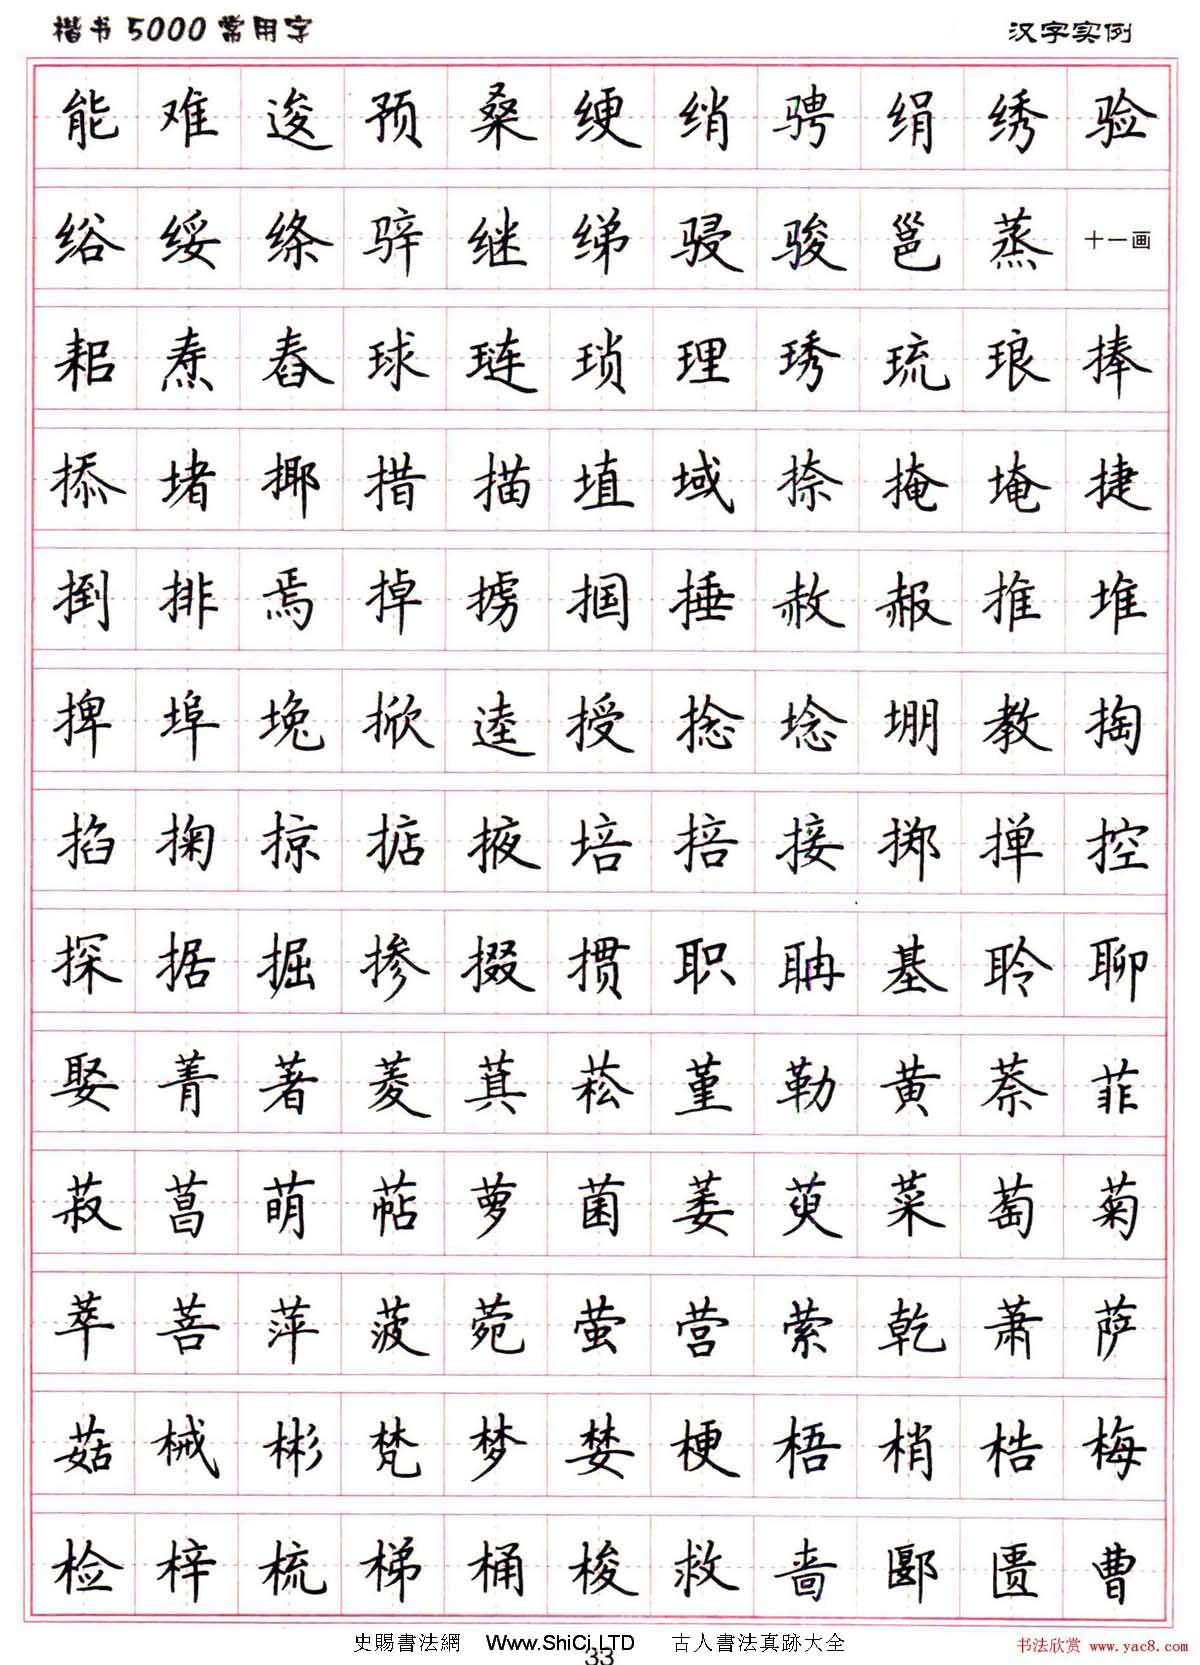 楷书5000常用字 汉字实例
能 难 逡 预 桑 绠 绡 骋 绢 绣 验
绤 绥 绦 骍 继 绨 骎 骏 邕 蒸 十一画
耜 焘 舂 球 琏 琐 理 琇 琉 琅 捧
掭 堵 揶 措 描 埴 域 捺 掩 埯 捷
捯 排 焉 掉 掳 掴 捶 赦 赧 推 堆
捭 埠 堍 掀 逵 授 捻 埝 堋 教 掏
掐 掬 掠 掂 掖 培 掊 接 掷 掸 控
探 据 掘 掺 掇 掼 职 聃 基 聆 聊
娶 菁 著 菱 萁 菘 堇 勒 黄 萘 菲
菽 菖 萌 萜 萝 菌 萎 萸 菜 萄 菊
萃 菩 萍 菠 菀 萤 营 萦 乾 萧 萨
菇 械 彬 梵 梦 婪 梗 梧 梢 梏 梅
检 梓 梳 梯 桶 梭 救 啬 郾 匮 曹
史賜書法網 Www.ShiCi.LTD 古人書法真跡大全
33
书法欣赏 www.yac8.com